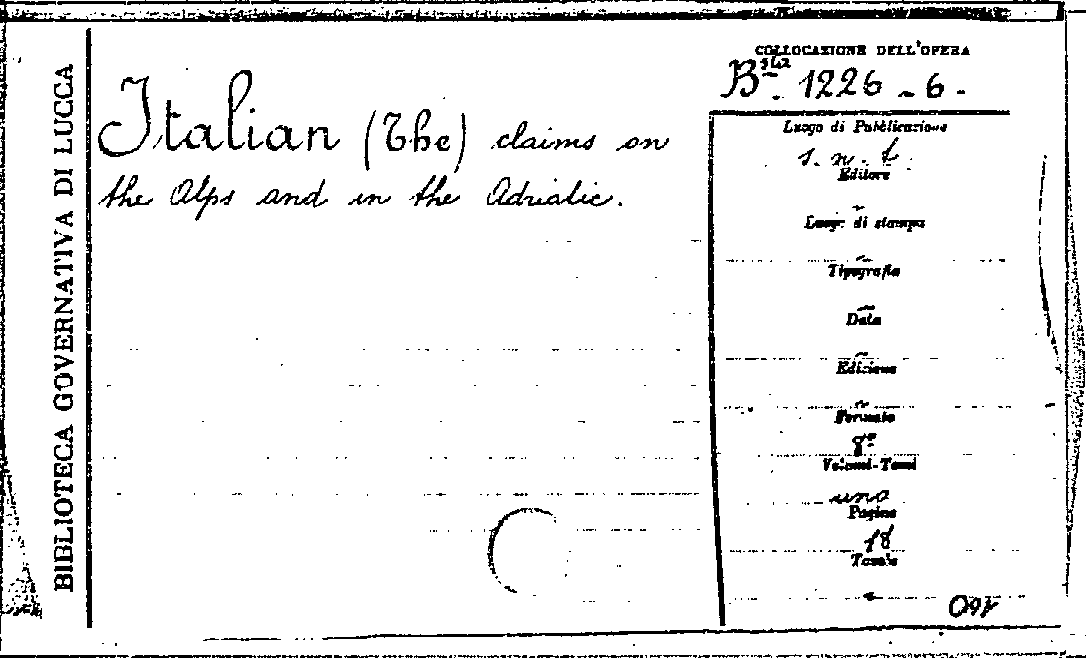 BIBLIOTECA GOVERNATIVA DI LUCCA
Italian (The) claims on
the Alps and in the Adriatic.
COLLOCAZIONE DELL'OPERA
B.ta 1226 - 6 -
Luogo di Pubblicazione
s. n. t.
Editore
Luogo di stampa
Tipografia
Data
Edizione
Formato
8º
Volumi-Tomi
uno
Pagine
18
Tavole